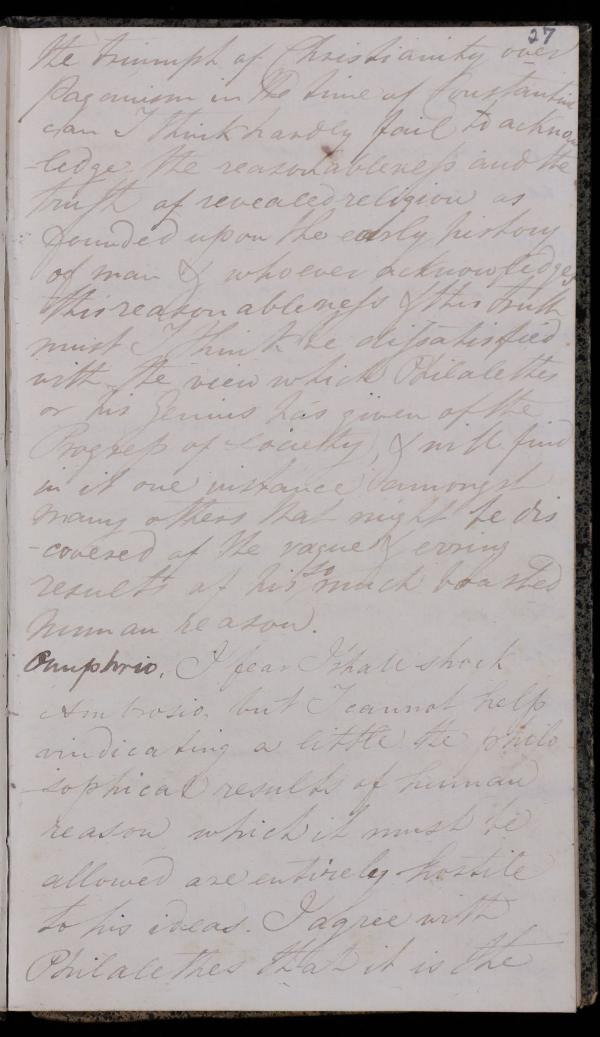 27
the triumph of Christianity over
Paganism in the time of Constantine
can I think hardly fail to acknow
-ledge the reasonableness and the
truth of revealed religion as
founded upon the early history
of man & whoever acknowledges
this reasonableness & this truth
must I think be dissatisfied
with the view which Philalethes
or his Genius has given of the
Progress of society, & will find
in it one instance amongst
many others that might be dis
-covered of the vague & erring
results of his so much boasted
human reason.
Onuphrio. I fear I shall shock
Ambrosio. but I cannot help
vindicating a little the philo
-sophical results of human
reason which it must be
allowed are entirely hostile
to his ideas. I agree with
Philalethes that it is the